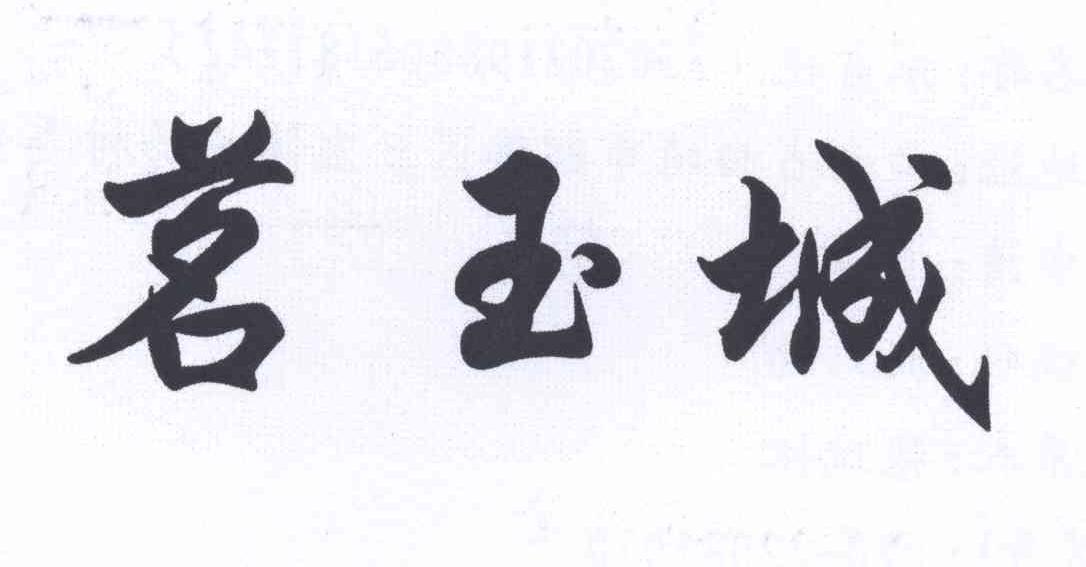 茗玉城